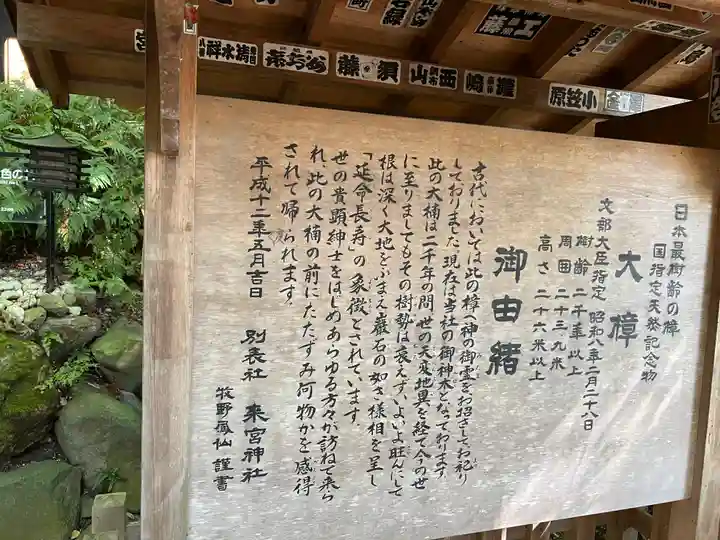 日本最樹齢の樟
国指定天然記念物
大樟
文部大臣指定 昭和八年二月二十八日
樹齢 二千年以上
周囲 二十三、九米
高さ 二十六米以上
御由緒
古代においては此の樟へ神の御霊をお招きしてお祀り
しておりました、現在は当社の御神木となっております
此の大楠は二千年の間、世の天変地異を経て今の世
に至りましてもその樹勢は衰えず、いよいよ旺んにして
根は深く大地をふまえ巌石の如き様相を呈し
「延命長寿」の象徴とされています。
世の貴顕紳士をはじめあらゆる方々が訪ねて来ら
れ、此の大楠の前にたたずみ何物かを感得
されて帰られます。
平成十二年五月吉日 別表社 来宮神社
牧野鳳仙 謹書
清水群
須藤
西山
小笠原